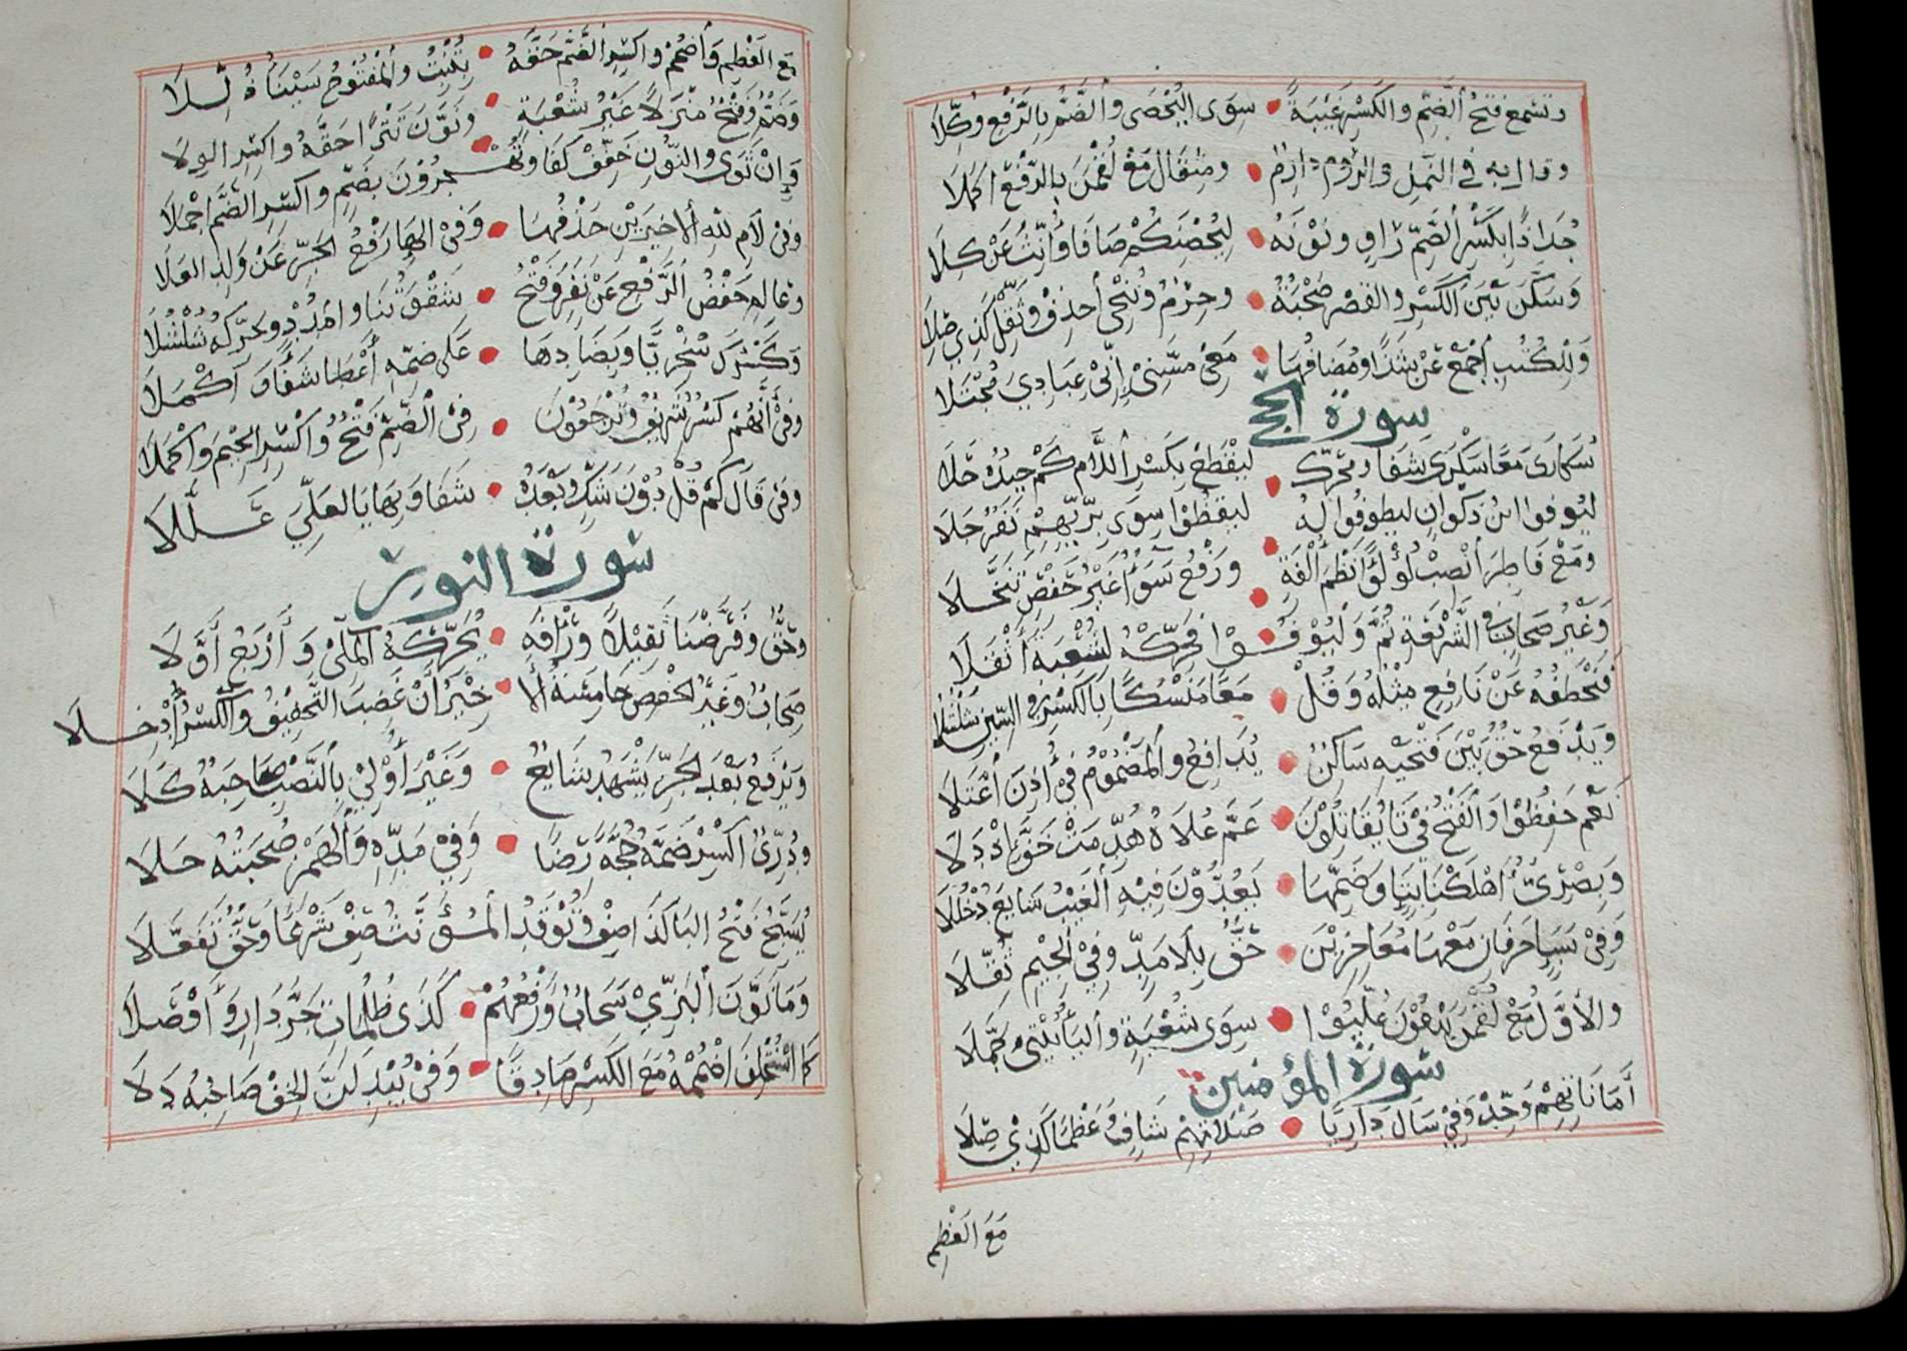 وتسمع فتح الضم والكسر غيبة • سوى اليحصبى والضم بالرفع وكلا
وقال به فى النمل والروم دارم • ومثقال مع لقمن بالرفع اكملا
جُذاذًا بكسر الضم راوٍ ونونه • ليحصنكم صافا وأنث عن كلا
وسكن بين الكسر والقصر صحبة • وحرم وننجى أحذف وثقل كذى صلا
وللكتب اجمع عن شذا ومضافها • معى مسنى إنى عبادى مجتلا
سورة الحج
سكارى معا سكرى شفا ومحرك • ليقطع بكسر اللام كم جيده حلا
ليوفوا ابن ذكوان ليطوفوا له • ليقضوا سوى بزيهم نفر جلا
ومع فاطر أنصب لؤلؤا نظم ألفة • ورفع سواء غير حفص تنخلا
وغير صحاب فى الشريعة ثم وليوفوا • فحركه لشعبة أثقلا
فتخطفه عن نافع مثله وقل • معا منسكا بالكسر فى السين شلشلا
ويدفع حق بين فتحيه ساكن • يدافع والمضموم فى أذن أعتلا
نعم حفظوا والفتح فى تا يقاتلون • عم علاه هدمت خف إذ دلا
وبصرى أهلكنا بتا وضمها • يعدون فيه الغيب شايع دخللا
وفى سبا حرفان معها معاجزين • حق بلا مد وفى الجيم ثقلا
والأول مع لقمن يدعون غلبوا • سوى شعبة والياء بيتى جملا
سورة المؤمنين
أماناتهم وحد وفى سال داريا • صلاتهم شاف وعظما كذى صلا
مع العظم
مع العظم وأضمم واكسر الضم حقه • بتنبت والمفتوح سيناء ذللا
وضم وفتح منزلا غير شعبة • ونون تترا حقه واكسر الولا
وإن ثوى والنون خفف كفا وتهجرون بضم واكسر الضم اجملا
وفى لام لله الاخيرين حذفها • وفى الهاء رفع الجر عن ولد العلا
وعالم خفض الرفع عن نفر وفتح • شقوتنا وامدد وحركه شلشلا
وكسرك سخريا وبصادها • على ضمه أعطا شفاء وأكملا
وفى أنهم كسر شريف وترجعون • فى الضم فتح واكسر الجيم واكملا
وفى قال كم قل دون شك وبعده • شفا وبها يا لعلى عللا
سورة النور
وحق وفرضنا ثقيلا ورأفه • يحركه المكى وأربع أولا
صحاب وغير الحفص خامسة ألا • خير أن غضب التخفيف والكسر أدخلا
ويرفع بعد الجر يشهد شايع • وغير أولى بالنصب صاحبه كلا
ودرى اكسر ضمه حجة رضا • وفى مده والهمز صحبته حلا
يسبح فتح البا كذا صف وتوقد المؤنث صف شرعا وحق تفعلا
وما نون البزى سحاب ورفعهم • لذى ظلمات جر دار وأوصلا
كما استخلف اضممه مع الكسر صادقا • وفى يبدلن الخف صاحبه دلا